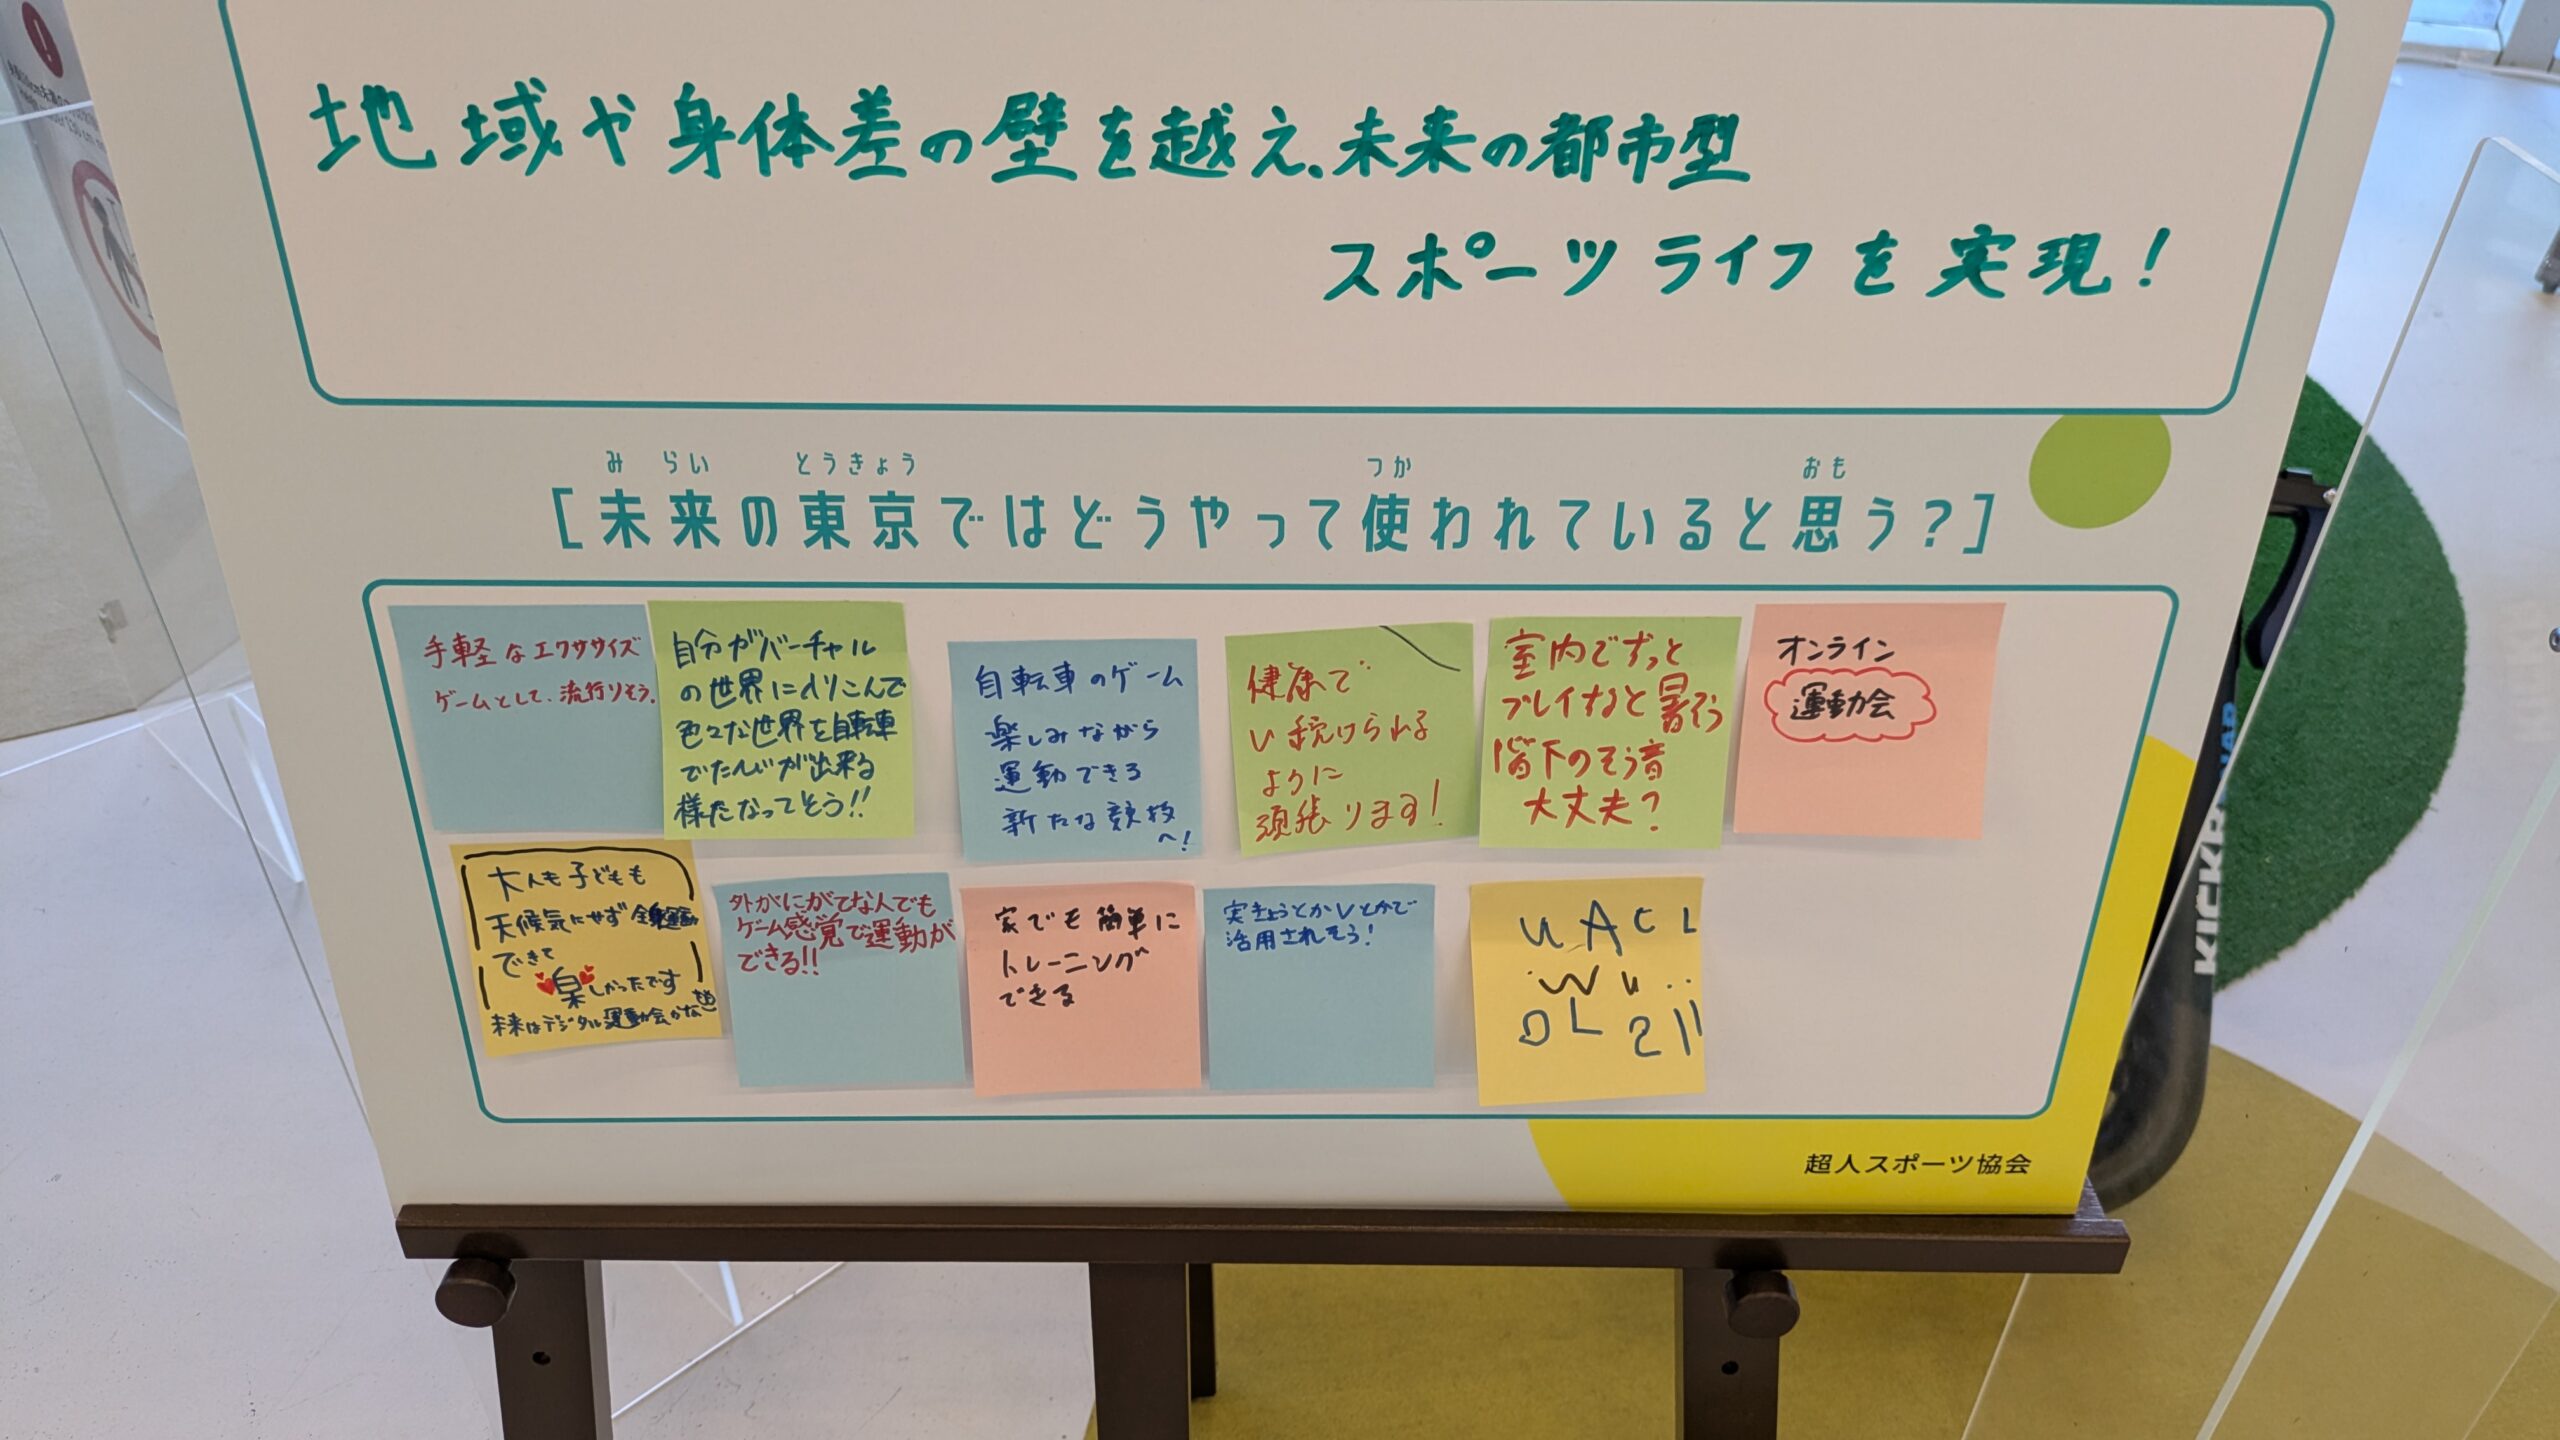 地域や身体差の壁を越え、未来の都市型
スポーツライフを実現!
みらい とうきょう つか おも
[未来の東京ではどうやって使われていると思う?]
手軽なエクササイズ
ゲームとして、流行りそう。
自分がバーチャル
の世界に入りこんで
色々な世界を自転車
でたんけんが出来る
様になってそう!!
自転車のゲーム
楽しみながら
運動できる
新たな競技
へ!
健康で
い続けられる
ように
頑張ります!
室内でずっと
プレイすると暑そう
階下のそう音
大丈夫?
オンライン
運動会
大人も子どもも
天候気にせず全身運動
できて
楽しかったです
未来はデジタル運動会かな
外がにがてな人でも
ゲーム感覚で運動が
できる!!
家でも簡単に
トレーニング
できる
実きょうとかVとかで
活用されそう!
超人スポーツ協会